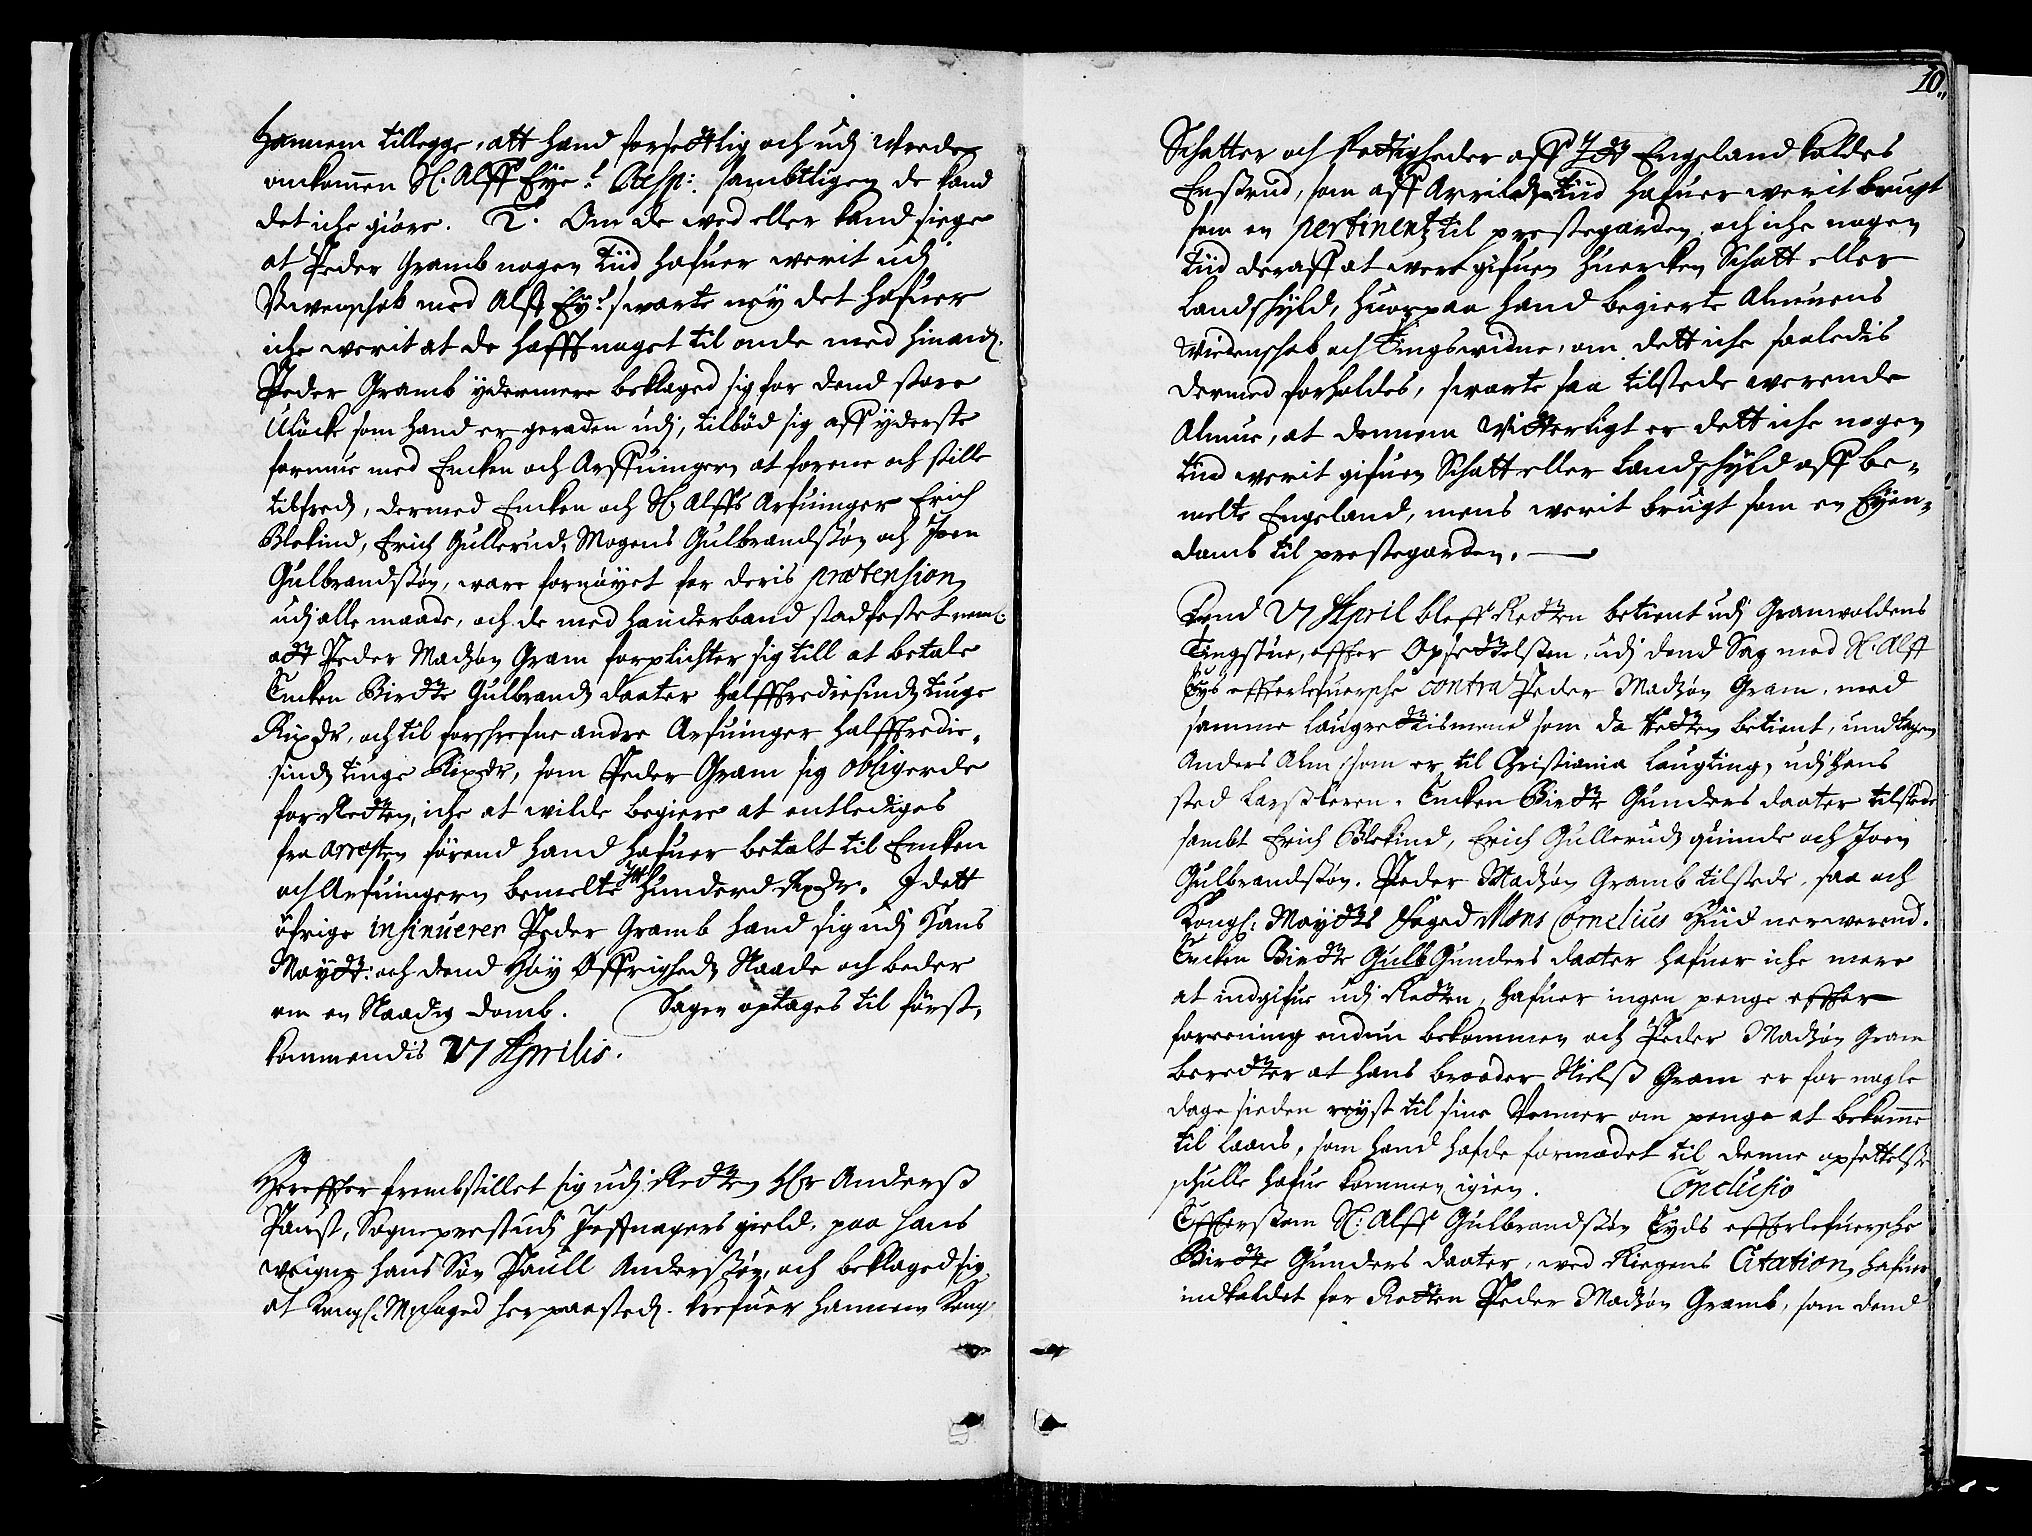 hannem tillegge, att hand forsettlig och udj Vrede
omkommen Sl: Alff Eye? Resp: sambtligen de kand
det iche giöre. 2. Om de wed eller kand siege
at Peder Gramb nogen tiid hafuer werit udj
Uwenschab med Alff Ey? swarte ney det hafuer
iche werit at de hafft noget til onde med hinand.
Peder Gramb ydermere beklaged sig for dend store
Ulöcke som hand er geraden udj, tilbød sig aff yderste
formue med Encken och Arffuingern at forene och stille
tilfreds, dermed Encken och Sl: Alffs Arfuinger Erich
Blekind, Erich Gullerud, Mogens Gulbrandssøn och Joen
Gulbrandssøn, ware fornøyet for deris prætension
udj alle maade, och de med haanderband stadfestet neml:
att Peder Madsøn Gram forplichter sig till at betale
Encken Birrtte Gulbrands daater halfftrediesinds tiuge
Rixdr, och til forschrefne andre Arfuinger halfftredie-
sinds tiuge Rixdr, som Peder Gram sig obligerde
for Retten, iche at wilde begiere at entlediges
fra arresten förend hand hafuer betalt til Encken
och Arfuingern bemelte Hunderd Rixdr. I dett
öfrige insinuerer Peder Gramb hand sig udj Kong
Maytt: och dend Høy Øffrigheds Naade och beder
om en Naadig domb. Sagen optages til först-
kommendis 27 Aprilis.
Herefter frembstillet sig udj Retten Her Anderss
Paust, Sogneprest udj Jeffnagers gield, paa hans
weigne hans Søn Paull Anderssøn, och beklaged sig
at Kongl. My: faged her paasteds. kræfuer hannem Kong
10.
Schatter och Rettigheder aff Itt Engeland kaldes
Enstrud, som aff Arrilds tiid hafuer werit brugt
som en pertinents til prestegarden, och iche nogen
tiid deraff at were gifuen huercken Schatt eller
Landschyld, huorpaa hand begierte Almuens
Widenschab och tingswidne, om dett iche saaledis
dermed forholdes, swarte saa tilstede werende
Almue, at dennem Witterligt er dett iche nogen
tiid werit gifuen Schatt eller Landschyld aff be-
melte Engeland, mens werit brugt som en Eyen-
damb til prestegarden.
Dend 27 April bleff Retten betient udj Granwoldens
Tingstue, effter Opsettelsen, udj dend Sag med Sl: Alff
Eys effterlefuersche contra Peder Madsøn Gram, med
samme Laugrettismend som da Retten betient, undtagen
Anders Alm som er til Christiania Laugting, udj hans
sted Lars Leren. Encken Birtte Gunders daater tilstede
sambt Erich Blekind, Erich Gulleruds quinde och Joen
Gulbrandssøn. Peder Madsøn Gramb tilstede, saa och
Kongl: Maytts Foged Mons Cornelius Hiid nerwerend.
Encken Birtte Gulb Gunders daater hafuer iche mere
at indgifue udj Retten, hafuer ingen penge effter
foreening endnu bekommen och Peder Madsøn Gram
beretter at hans brooder Nielss Gram er for nogle
dage sieden reyst til sine Wenner om penge at bekomme
til Laans, som hand hafde formodet til denne opsettelse
schulle hafue kommen igien. Conclusio
Effterssom Sl: Alff Gulbrandssøn Eyds effterlefuersche
Birtte Gunders daater, med Riegens Citation, hafuer
indkaldet for Retten Peder Madsøn Gramb, som dend